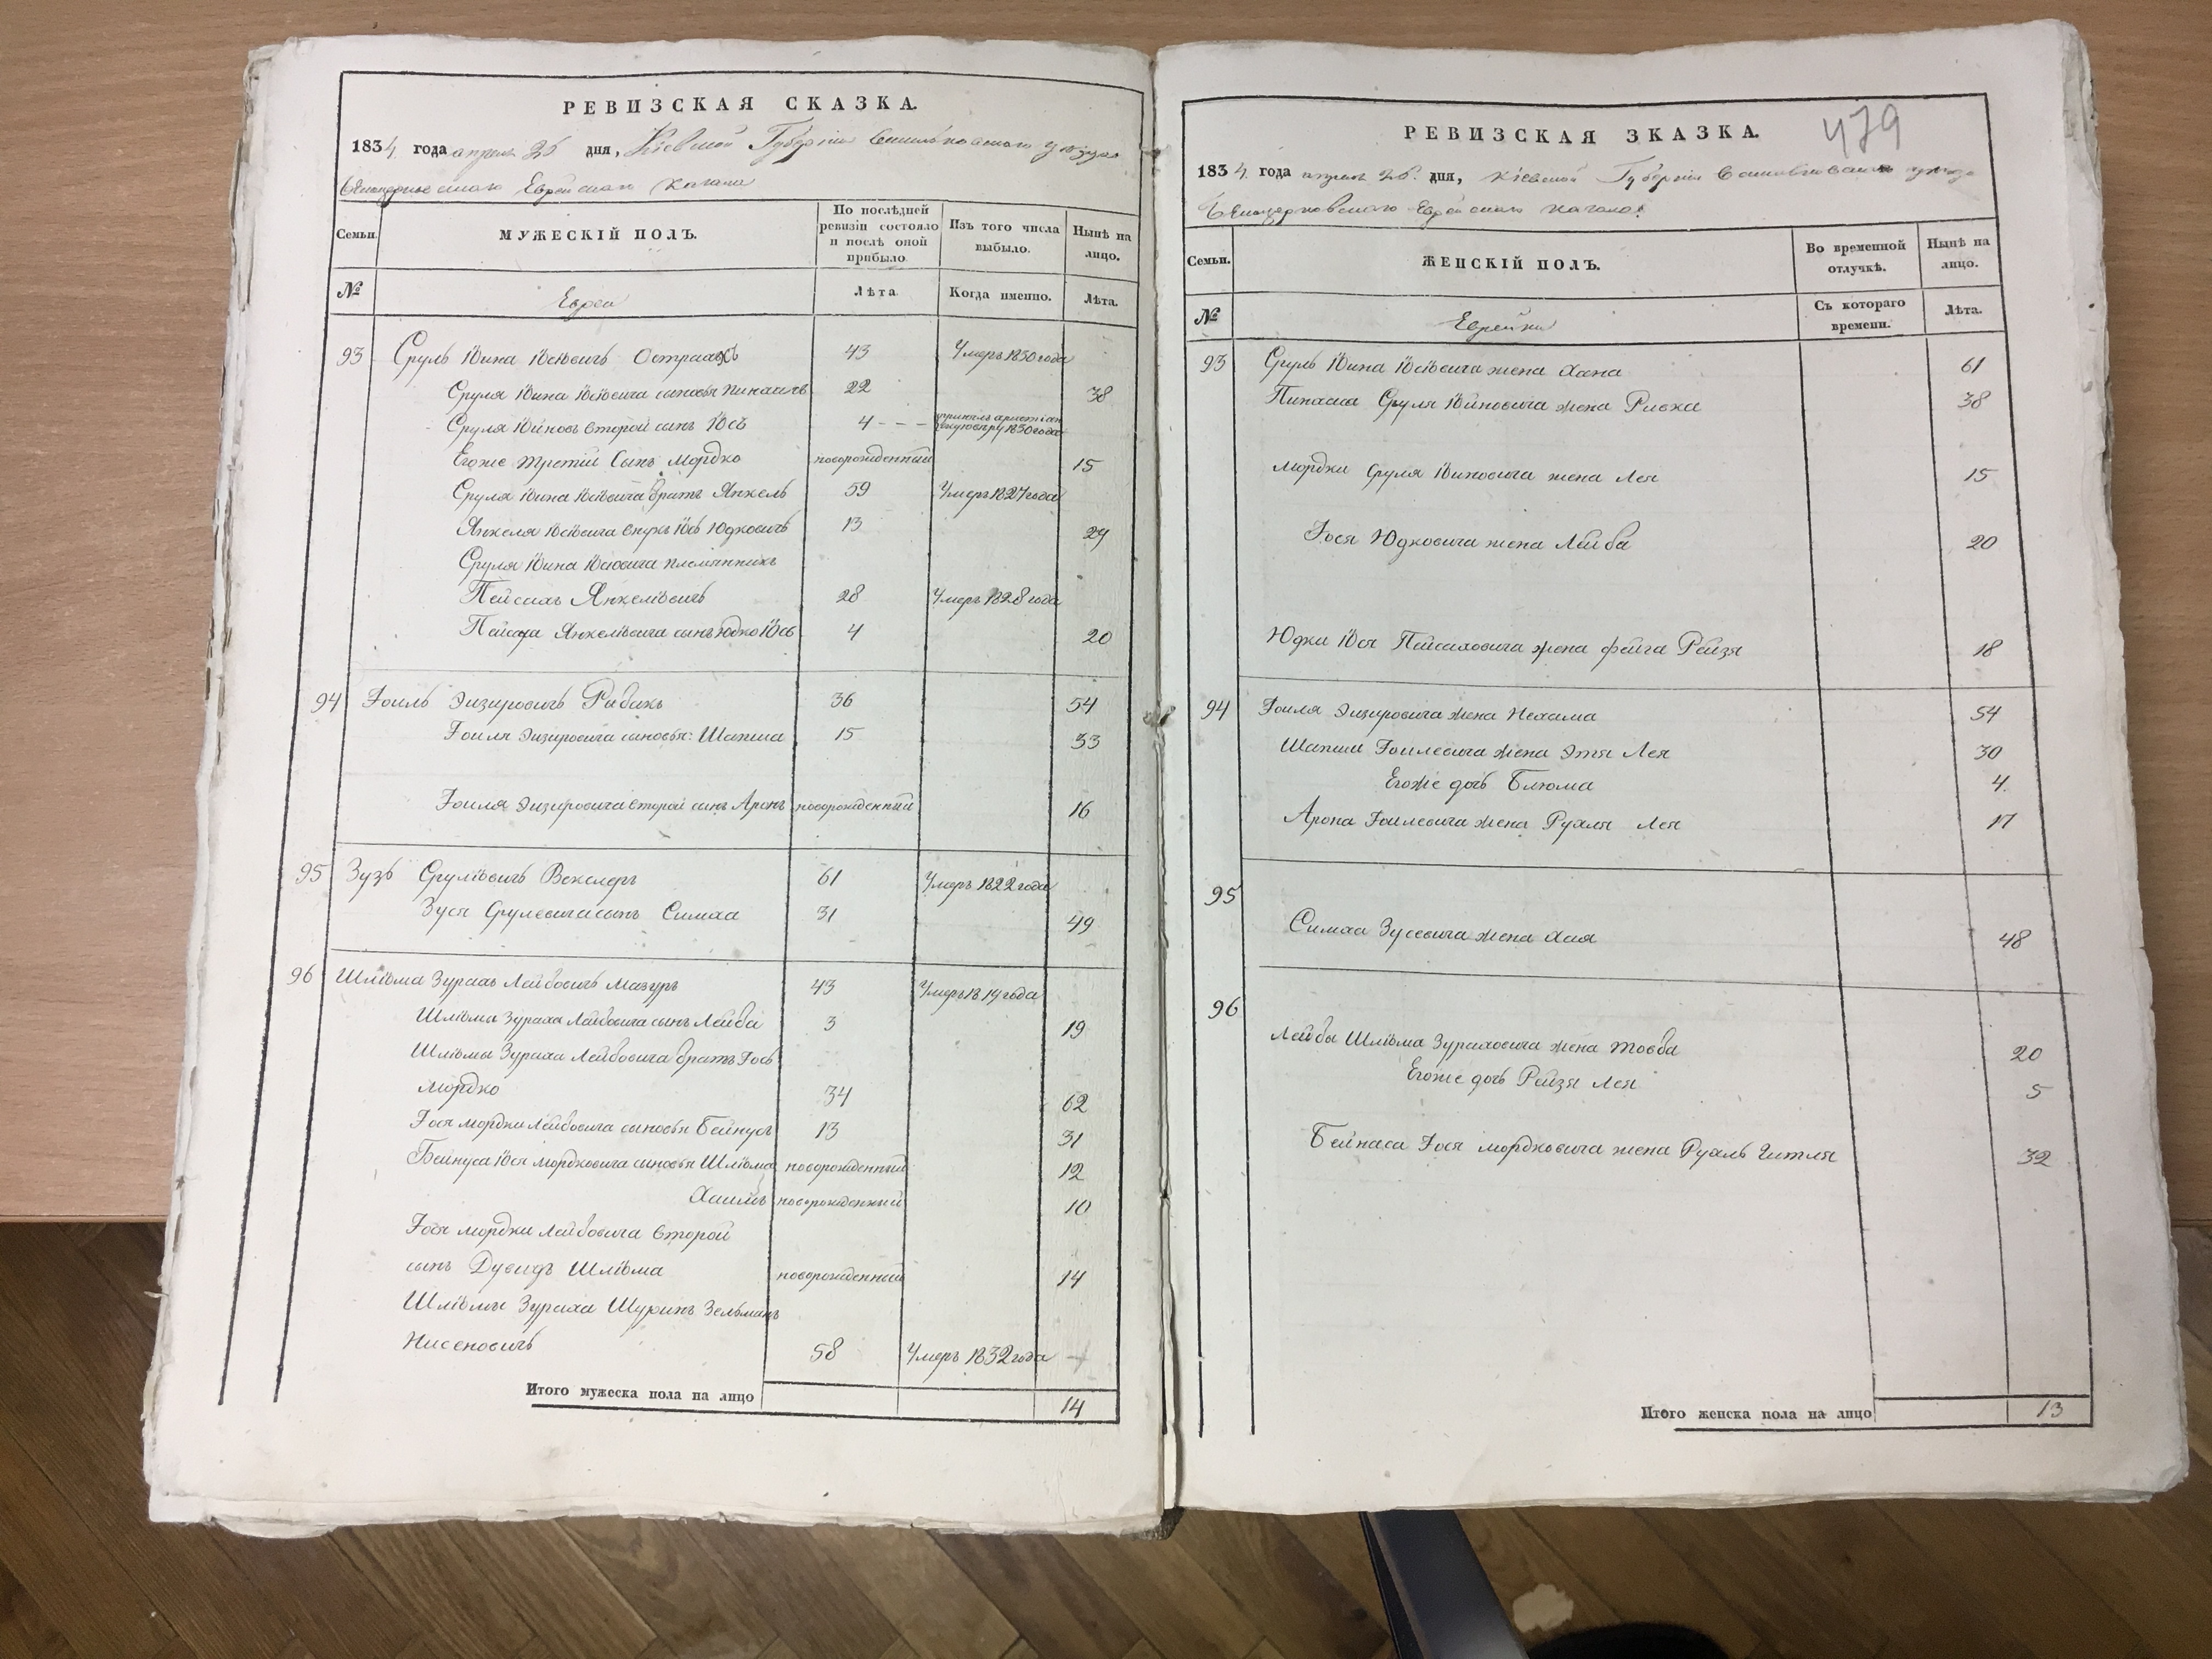 РЕВИЗСКАЯ СКАЗКА.
1834 года апреля 26 дня, Кіевской Губерніи Васильковскаго уѣзда
Бѣлоцерковскаго Еврейскаго Кагала
Семьи.
МУЖЕСКІЙ ПОЛЪ.
По послѣдней ревизіи состояло и послѣ оной прибыло.
Изъ того числа выбыло.
Нынѣ на лицо.
№
Евреи
Лѣта.
Когда именно.
Лѣта.
93 Сруль Іойна Іосіовичъ Острахъ 43 Умеръ 1830 года
Сруля Іойна Іосіовича сыновья Пинхасъ 22 38
Сруля Іойновъ второй сынъ Іось 4 - - - 1830 года
Егоже третій Сынъ Мордко новорожденный 15
Сруля Іойна Іосіовича братъ Янкель 59 Умеръ 1827 года
Янкеля Іосіовича внукъ Іось Юдковичъ 13 29
Сруля Іойна Іосіовича племянникъ
Пейсахъ Янкеліовичъ 28 Умеръ 1828 года
Пейсаха Янкеліовича сынъ Юдко Іось 4 20
94 Гоиль Эизировичъ Рыбакъ 36 54
Гоиля Эизировича сыновья: Шапша 15 33
Гоиля Эизировича второй сынъ Аронъ новорожденный 16
95 Зузь Сруліовичъ Векслеръ 61 Умеръ 1822 года
Зуся Срулевича сынъ Симха 31 49
96 Шліома Зурахъ Лейбовичъ Мазуръ 43 Умеръ 1819 года
Шліомы Зураха Лейбовича сынъ Лейба 3 19
Шліомы Зураха Лейбовича братъ Гось
Мордко 34 62
Гося Мордки Лейбовича сыновья Бейнусъ 13 31
Бейнуса Іося Мордковича сыновья Шліома новорожденный 12
Хаимъ новорожденный 10
Гося Мордки Лейбовича второй
сынъ Дувидъ Шліома новорожденный 14
Шліомы Зураха Шуринъ Зельманъ
Нисеновичъ 58 Умеръ 1832 года
Итого мужеска пола на лицо 14
479
РЕВИЗСКАЯ ЗКАЗКА.
1834 года апреля 26 дня, Кіевской Губерніи Васильковскаго уѣзда
Бѣлоцерковскаго Еврейскаго Кагала
Семьи.
ЖЕНСКІЙ ПОЛЪ.
Во временной отлучкѣ.
Нынѣ на лицо.
№
Еврейки
Съ котораго времени.
Лѣта.
93 Сруль Іойна Іосіовича жена Хана 61
Пинхаса Сруля Іойновича жена Ривка 38
Мордки Сруля Іойновича жена Лея 15
Гося Юдковича жена Лейба 20
Юдки Іося Пейсаховича жена Фейга Рейзя 18
94 Гоиля Эизировича жена Нехама 54
Шапши Гоилевича жена Этя Лея 30
Егоже дочь Блюма 4
Арона Гоилевича жена Рухля Лея 17
95
Симха Зусевича жена Хая 48
96
Лейбы Шліома Зураховича жена Товба 20
Егоже дочь Рейзя Лея 5
Бейнаса Гося Мордковича жена Рухль Гитля 32
Итого женска пола на лицо 13